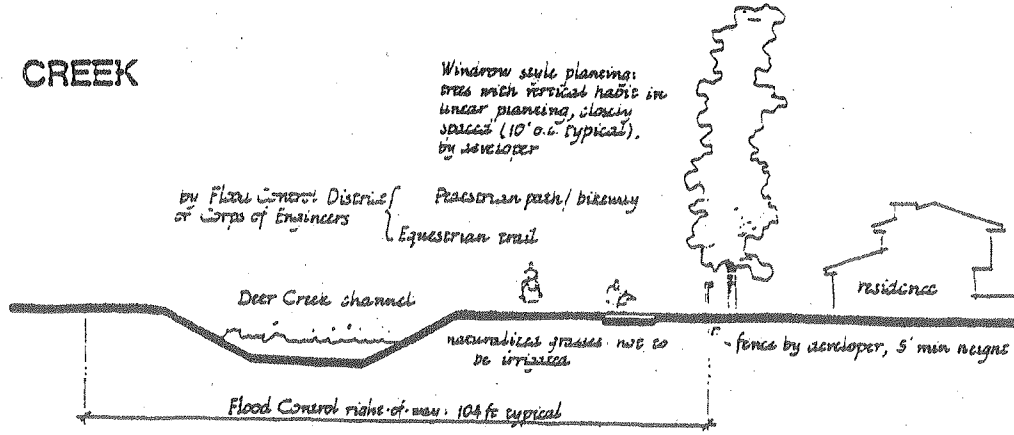 CREEK
Windrow style planting:
trees with vertical habit in
linear planting, closely
spaced (10' o.c. typical),
by developer
by Flood Control District
or Corps of Engineers
Pedestrian path / bikeway
Equestrian trail
Deer Creek channel
residence
naturalized grasses not to
be irrigated
fence by developer, 5' min height
Flood Control right-of-way: 104 ft typical